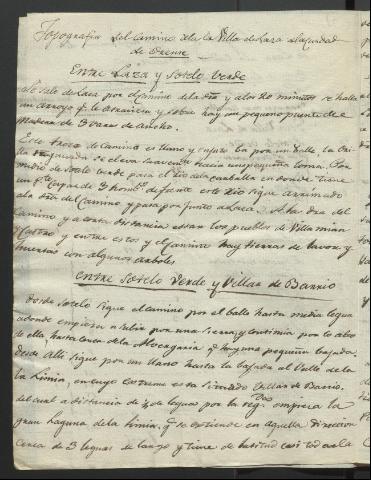 Topografia del camino de la Villa de Laza a la Ciudad
de Orense
Entre Laza y Sotelo Verde
Se Sale de Laza por el camino de la dra y a los 20 minutos se halla
un arroyo qe le atraviesa y sobre hay un pequeño puente de
Madera de 3 varas de ancho.
Este trozo de camino es llano y sujeto la por un Valle, la
izquierda se eleva suavemente hacia una pequeña loma. Por
medio de Sotelo verde pasa el Rio en donde tiene
un pte capaz de 3 hombs de frente este Rio sigue arrimado
a la dra del Camino y pasa por junto a Laza. A la dra del
Camino y a corta distancia estan los pueblos de Villamian
y Castro y entre estos y el Camino hay tierras de lavor y
huertas con algunos arboles
Entre Sotelo Verde y Villar de Barrio
desde Sotelo Sigue el camino por el balle hasta media legua
adonde empieza a subir por una Sierra y continua por lo alto
de ella hasta cerca de la Alberguria qe hay una pequeña bajada,
desde alli sigue por un llano hasta la bajada al Valle de
la Limia, en cuyo estremo esta situado Villar de Barrio.
del cual a distancia de ¼ de legua por la izqda empieza la
gran laguna de la Limia, qe se extiende en aquella direccion
cerca de 3 leguas de largo y tiene de latitud casi todo el